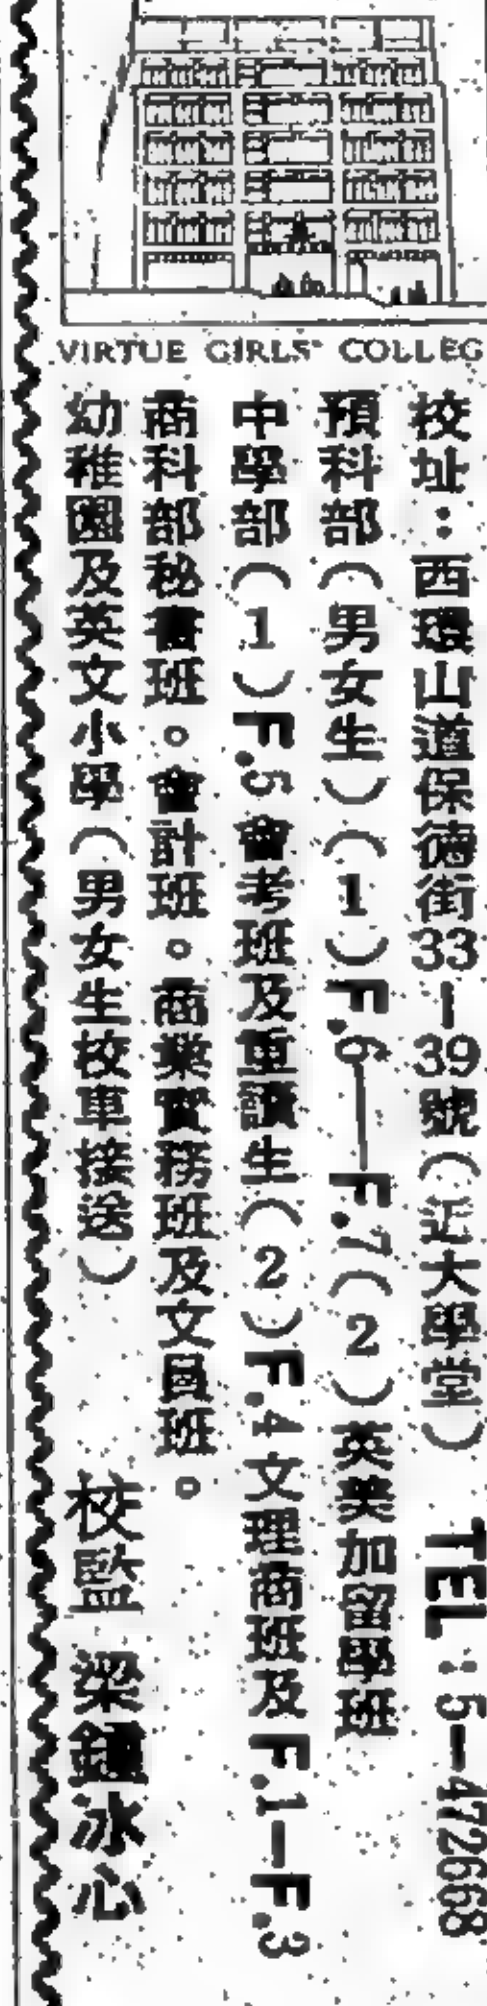 VIRTUE GIRLS' COLLEG
校址：西環山道保德街33—39號（近大學堂） TEL：5—472668
預科部（男女生）（1）F.6—F.7（2）英美加留學班
中學部（1）F.5會考班及重讀生（2）F.4文理商班及F.1—F.3
商科部秘書班。會計班。商業實務班及文員班。
幼稚園及英文小學（男女生校車接送） 校監 梁鍾冰心